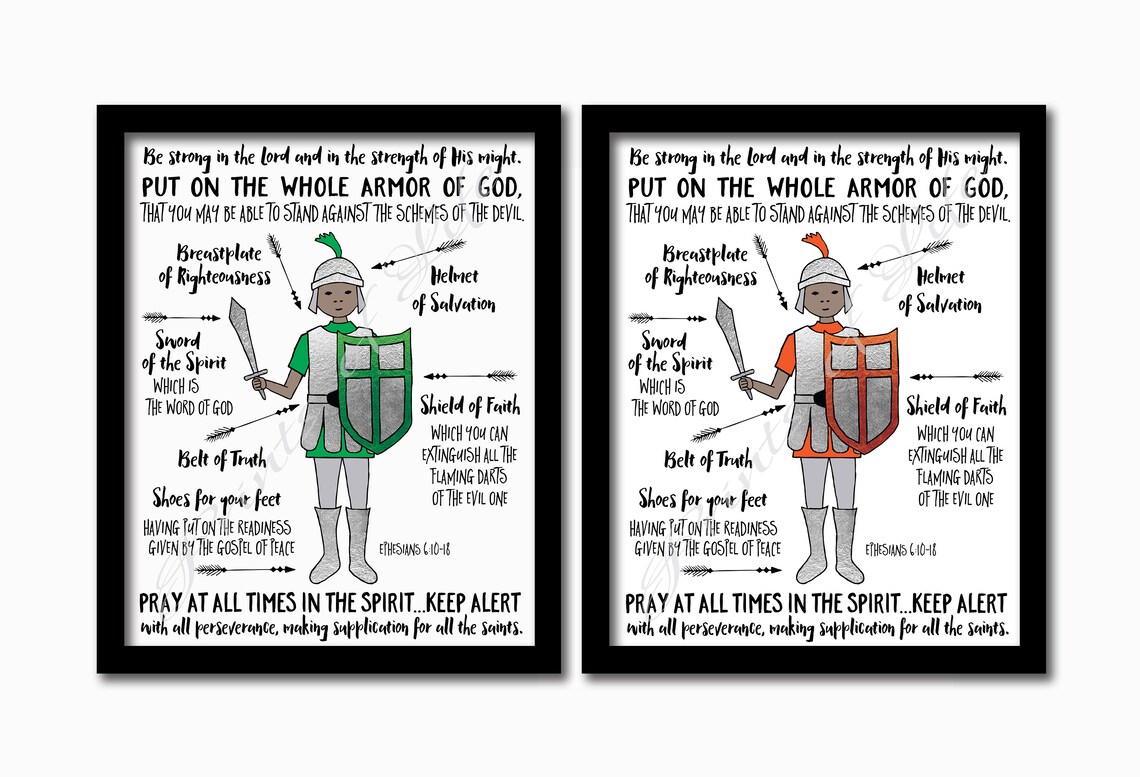 Be strong in the Lord and in the strength of His might.
PUT ON THE WHOLE ARMOR OF GOD,
THAT YOU MAY BE ABLE TO STAND AGAINST THE SCHEMES OF THE DEVIL.
Breastplate
of Righteousness
Helmet
of Salvation
Sword
of the Spirit
WHICH IS
THE WORD OF GOD
Shield of Faith
WHICH YOU CAN
EXTINGUISH ALL THE
FLAMING DARTS
OF THE EVIL ONE
Belt of Truth
Shoes for your feet
HAVING PUT ON THE READINESS
GIVEN BY THE GOSPEL OF PEACE
EPHESIANS 6:10-18
PRAY AT ALL TIMES IN THE SPIRIT...KEEP ALERT
with all perseverance, making supplication for all the saints.
Be strong in the Lord and in the strength of His might.
PUT ON THE WHOLE ARMOR OF GOD,
THAT YOU MAY BE ABLE TO STAND AGAINST THE SCHEMES OF THE DEVIL.
Breastplate
of Righteousness
Helmet
of Salvation
Sword
of the Spirit
WHICH IS
THE WORD OF GOD
Shield of Faith
WHICH YOU CAN
EXTINGUISH ALL THE
FLAMING DARTS
OF THE EVIL ONE
Belt of Truth
Shoes for your feet
HAVING PUT ON THE READINESS
GIVEN BY THE GOSPEL OF PEACE
EPHESIANS 6:10-18
PRAY AT ALL TIMES IN THE SPIRIT...KEEP ALERT
with all perseverance, making supplication for all the saints.